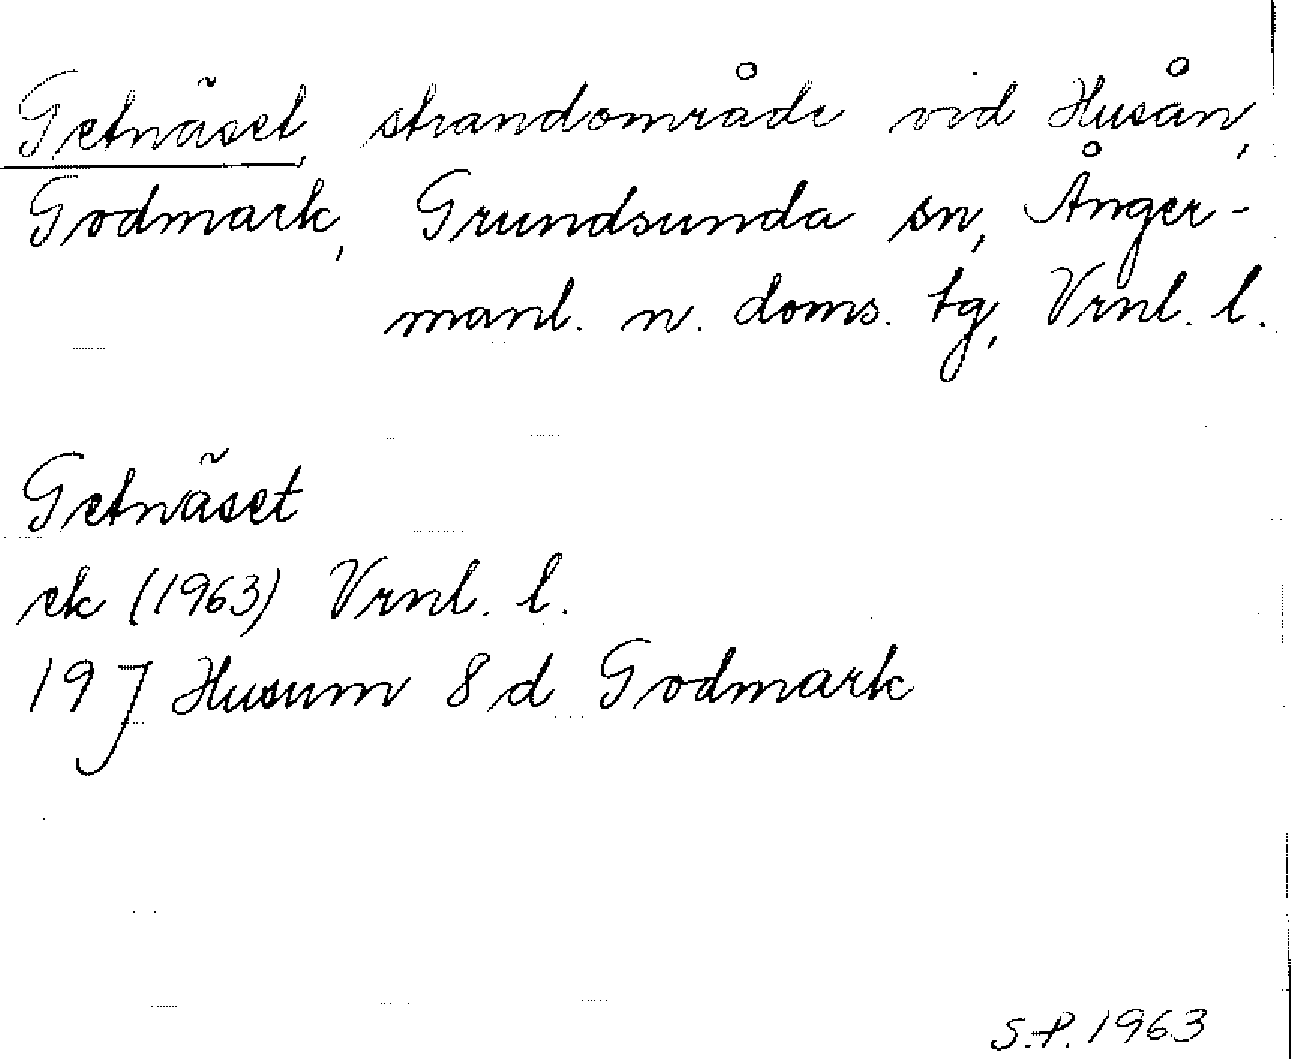 Getnäset, strandområde vid Husån,
Godmark, Grundsunda sn, Ånger-
manl. n. doms. tg, Vrnl. l.
Getnäset
ek (1963) Vrnl. l.
19 J Husum 8 d Godmark
S.P. 1963